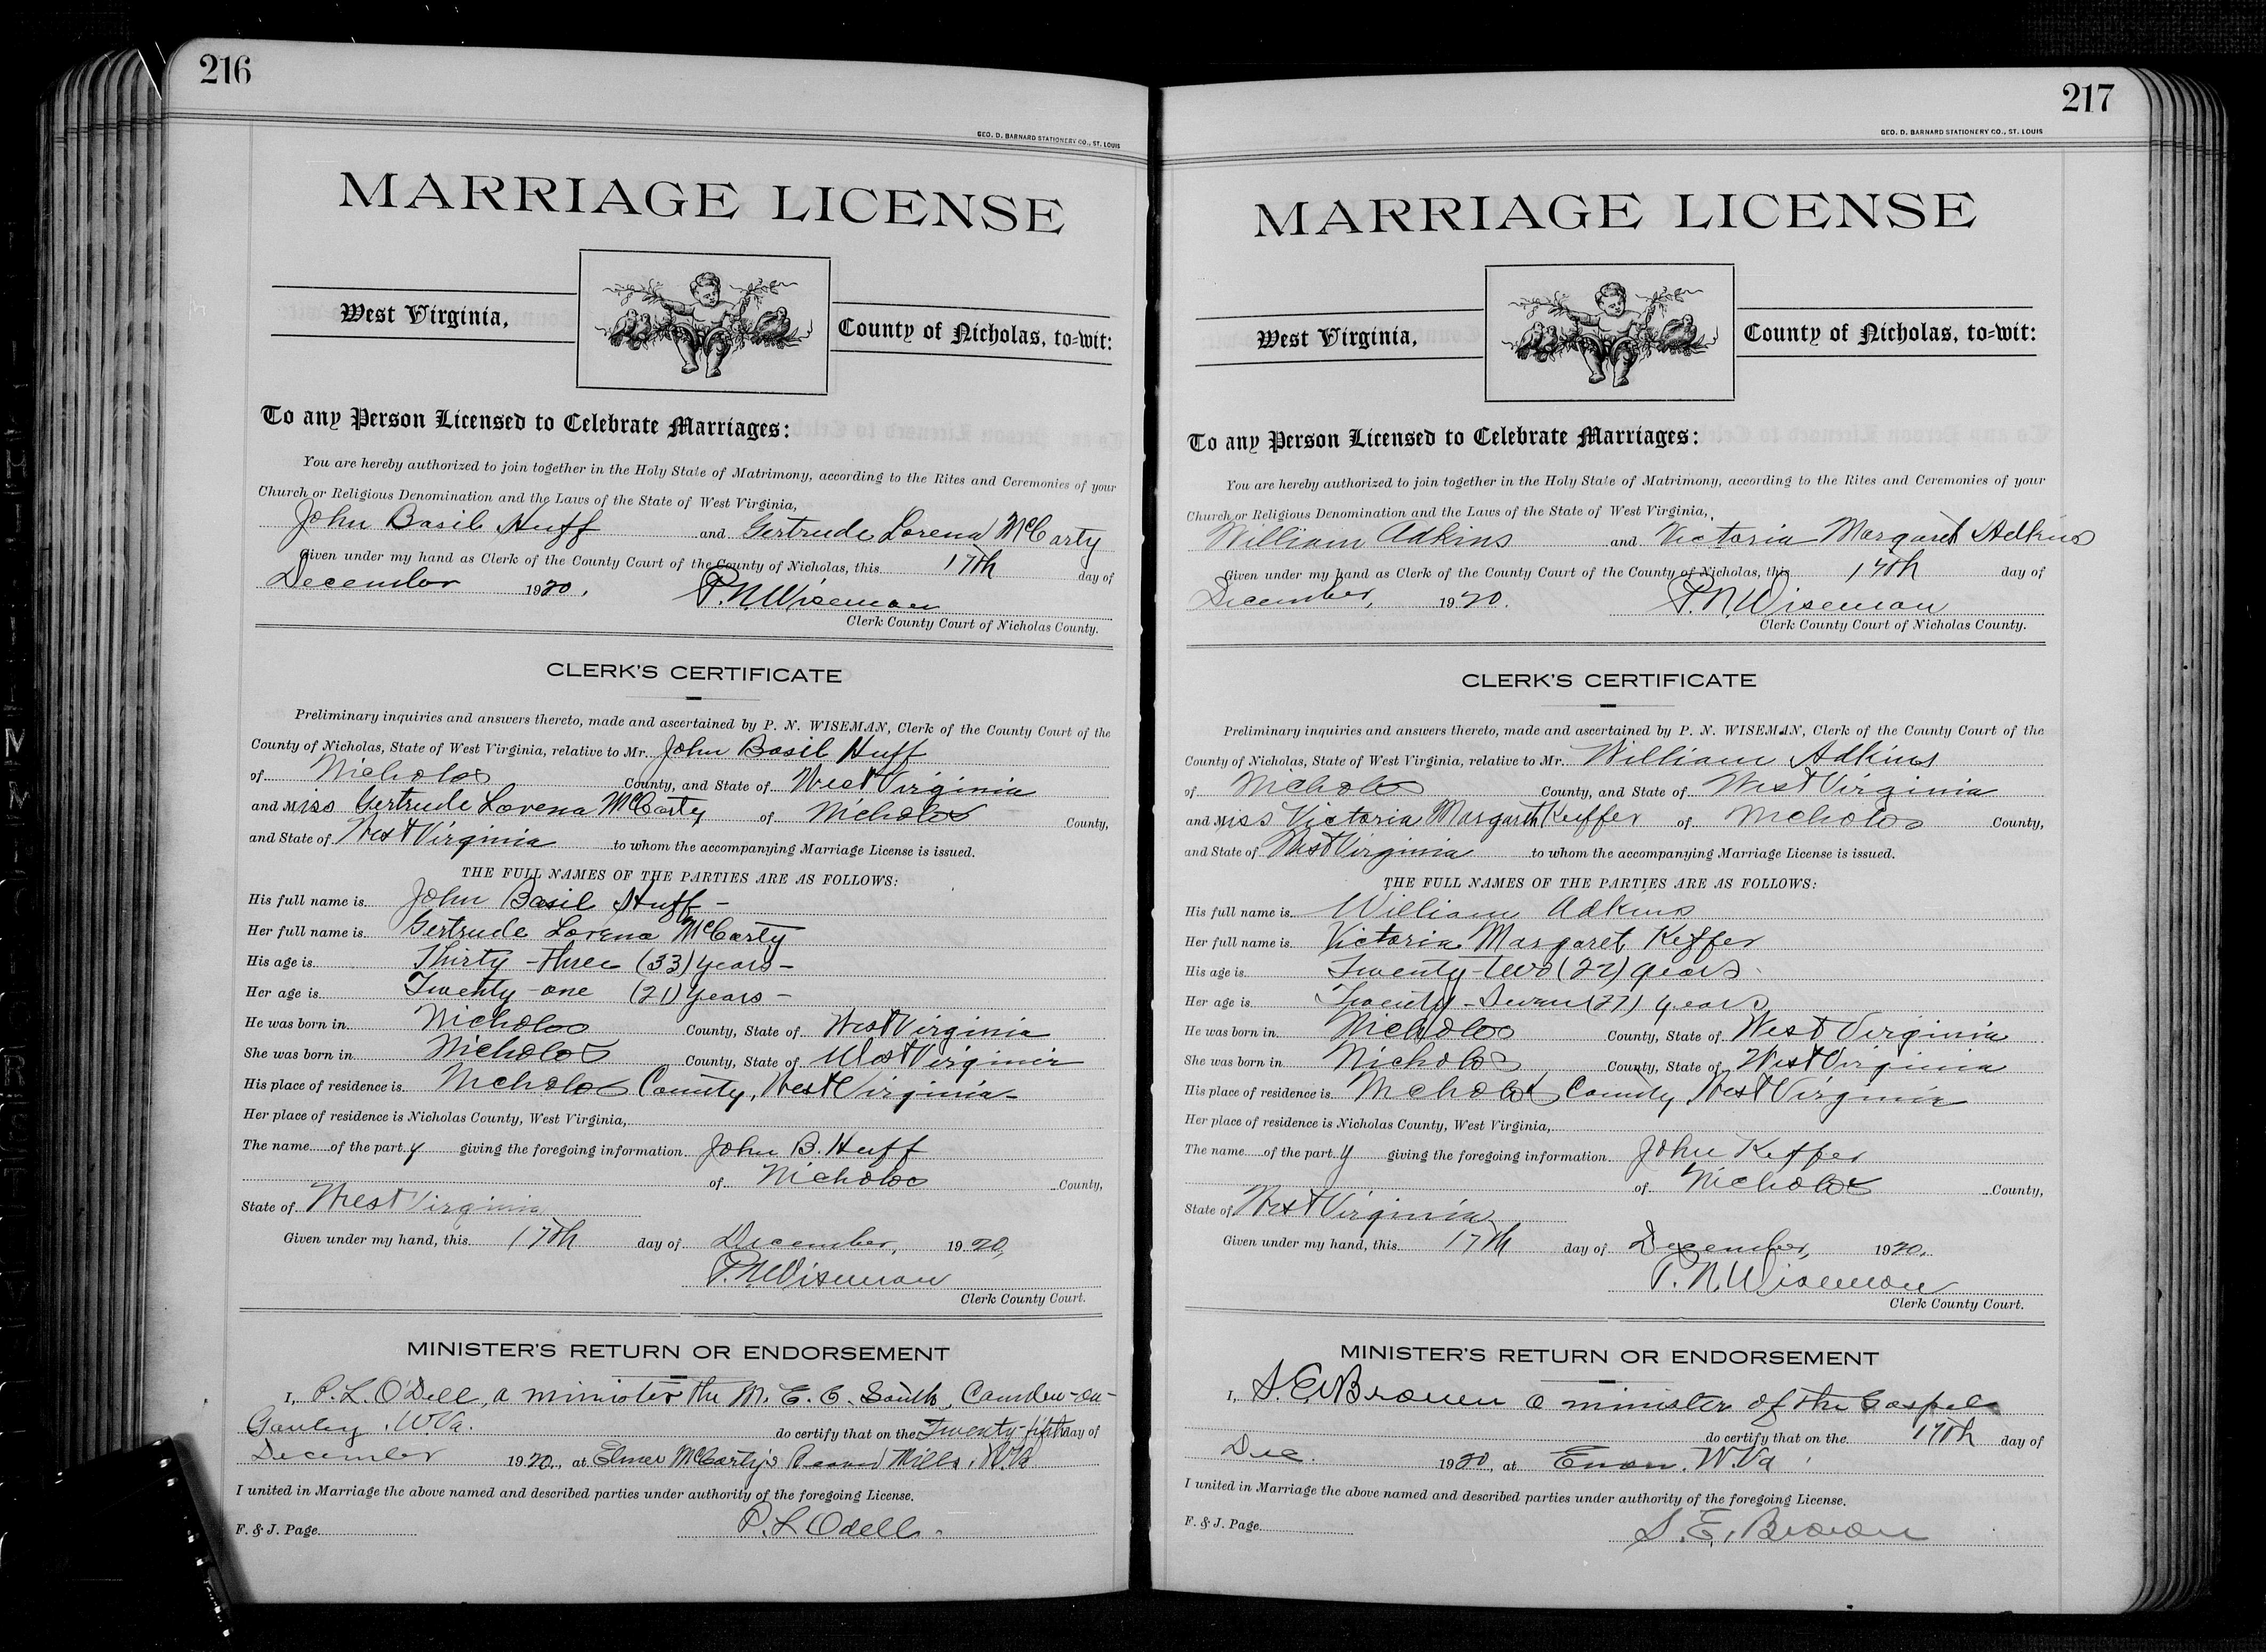 216
GEO. D. BARNARD STATIONERY CO., ST. LOUIS
MARRIAGE LICENSE
West Virginia,
County of Nicholas, to=wit:
To any Person Licensed to Celebrate Marriages:
You are hereby authorized to join together in the Holy State of Matrimony, according to the Rites and Ceremonies of your
Church or Religious Denomination and the Laws of the State of West Virginia,
John Basil Huff and Gertrude Lorena McCarty
Given under my hand as Clerk of the County Court of the County of Nicholas, this 17th day of
December 1920. P. N. Wiseman
Clerk County Court of Nicholas County.
CLERK'S CERTIFICATE
Preliminary inquiries and answers thereto, made and ascertained by P. N. WISEMAN, Clerk of the County Court of the
County of Nicholas, State of West Virginia, relative to Mr. John Basil Huff
of Nicholas County, and State of West Virginia
and Miss Gertrude Lorena McCarty of Nicholas County,
and State of West Virginia to whom the accompanying Marriage License is issued.
THE FULL NAMES OF THE PARTIES ARE AS FOLLOWS:
His full name is John Basil Huff -
Her full name is Gertrude Lorena McCarty
His age is Thirty-three (33) years -
Her age is Twenty-one (21) years -
He was born in Nicholas County, State of West Virginia
She was born in Nicholas County, State of West Virginia
His place of residence is Nicholas County, West Virginia -
Her place of residence is Nicholas County, West Virginia,
The name of the party giving the foregoing information John B. Huff
of Nicholas County,
State of West Virginia
Given under my hand, this 17th day of December, 1920,
P. N. Wiseman
Clerk County Court.
MINISTER'S RETURN OR ENDORSEMENT
I, P. L. O'Dell, a minister the M. E. C. South, Camden-on-
Gauley, W. Va. do certify that on the Twenty-fifth day of
December 1920, at Elmer McCarty's Mills, W. Va
I united in Marriage the above named and described parties under authority of the foregoing License.
F. & J. Page P. L. Odell.
217
GEO. D. BARNARD STATIONERY CO., ST. LOUIS
MARRIAGE LICENSE
West Virginia,
County of Nicholas, to=wit:
To any Person Licensed to Celebrate Marriages:
You are hereby authorized to join together in the Holy State of Matrimony, according to the Rites and Ceremonies of your
Church or Religious Denomination and the Laws of the State of West Virginia,
William Adkins and Victoria Margaret Adkins
Given under my hand as Clerk of the County Court of the County of Nicholas, this 17th day of
December, 1920. P. N. Wiseman
Clerk County Court of Nicholas County.
CLERK'S CERTIFICATE
Preliminary inquiries and answers thereto, made and ascertained by P. N. WISEMAN, Clerk of the County Court of the
County of Nicholas, State of West Virginia, relative to Mr. William Adkins
of Nicholas County, and State of West Virginia
and Miss Victoria Margareth Keffer of Nicholas County,
and State of West Virginia to whom the accompanying Marriage License is issued.
THE FULL NAMES OF THE PARTIES ARE AS FOLLOWS:
His full name is William Adkins
Her full name is Victoria Margaret Keffer
His age is Twenty-two (22) years
Her age is years
He was born in Nicholas County, State of West Virginia
She was born in Nicholas County, State of West Virginia
His place of residence is Nicholas County, West Virginia
Her place of residence is Nicholas County, West Virginia,
The name of the party giving the foregoing information John Keffer
of Nicholas County,
State of West Virginia
Given under my hand, this 17th day of December, 1920.
P. N. Wiseman
Clerk County Court.
MINISTER'S RETURN OR ENDORSEMENT
I, S. E. Brown a minister of the Gospel
do certify that on the 17th day of
Dec. 1920, at Enon, W. Va
I united in Marriage the above named and described parties under authority of the foregoing License.
F. & J. Page S. E. Brown